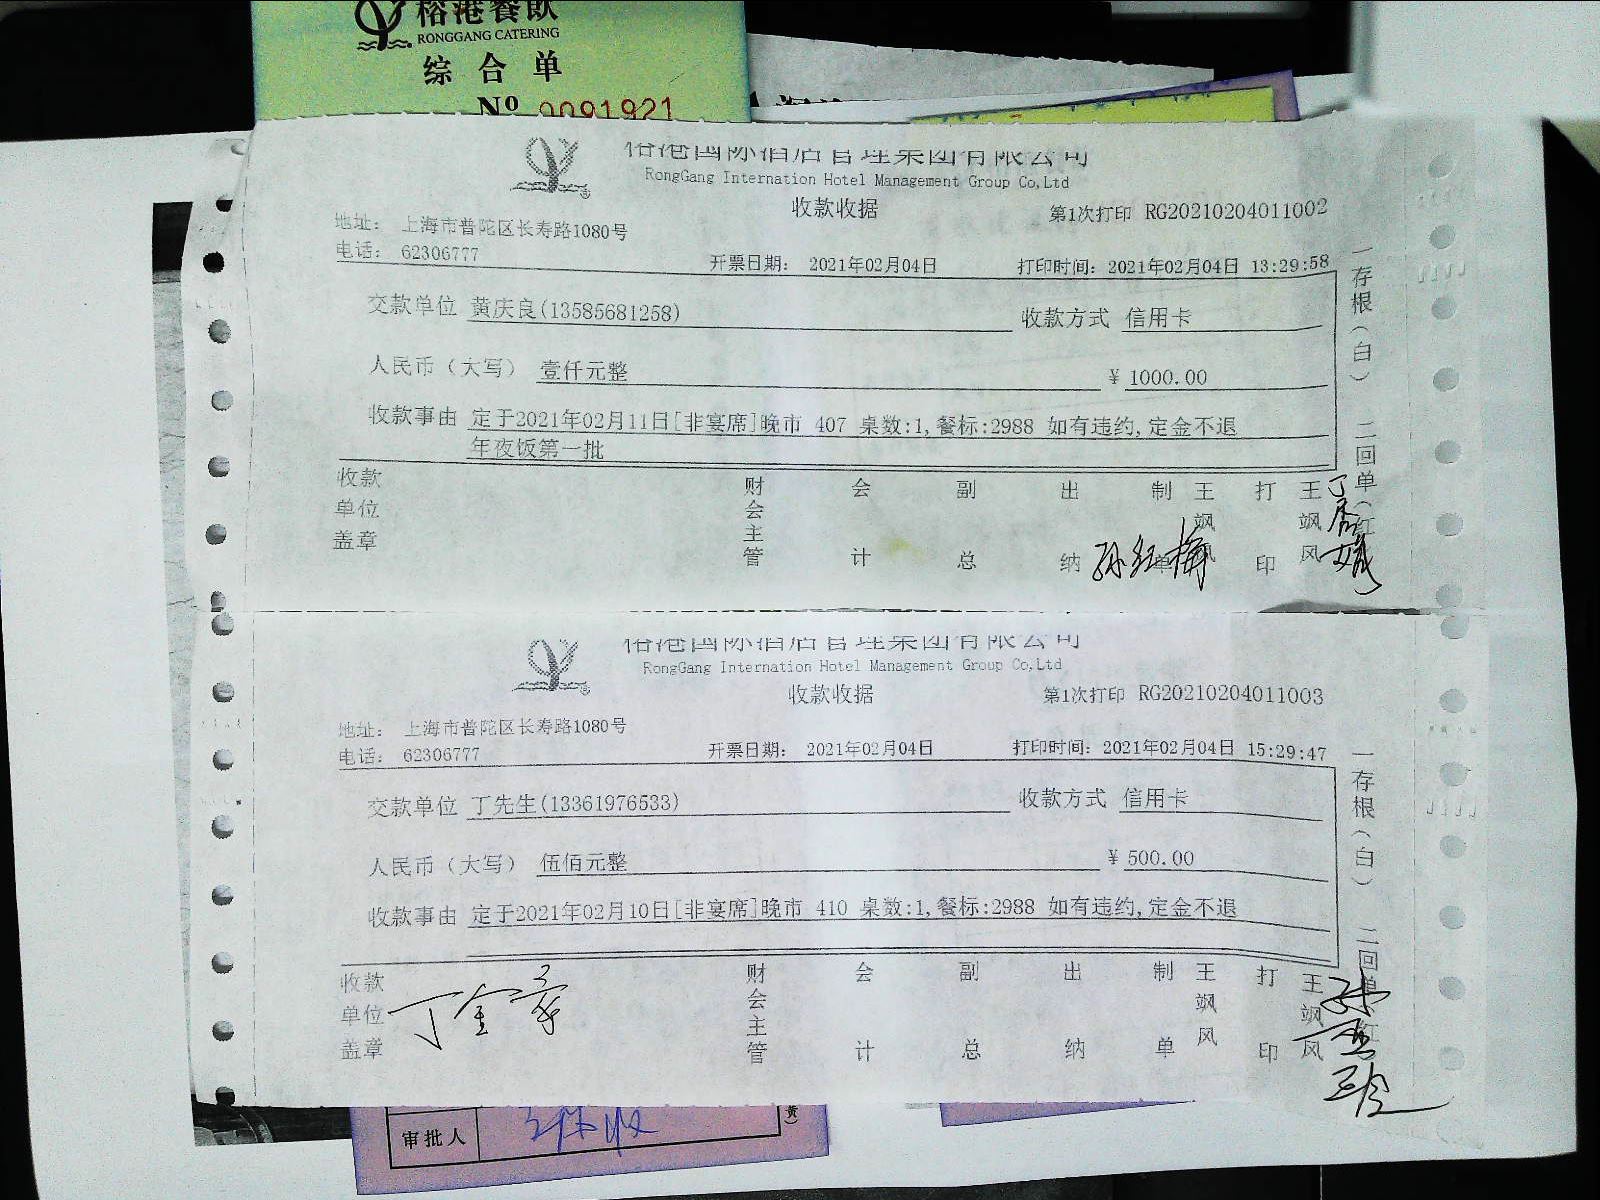 榕港餐飲
RONGGANG CATERING
综合单
Nº 0091921
榕港国际酒店管理集团有限公司
RongGang Internation Hotel Management Group Co,Ltd
收款收据
第1次打印 RG20210204011002
地址： 上海市普陀区长寿路1080号
电话： 62306777
开票日期： 2021年02月04日
打印时间：2021年02月04日 13:29:58
交款单位 黄庆良(13585681258)
收款方式 信用卡
人民币（大写） 壹仟元整
¥ 1000.00
收款事由 定于2021年02月11日[非宴席]晚市 407 桌数:1,餐标:2988 如有违约,定金不退
年夜饭第一批
收款单位盖章
财会主管
会计
副总
出纳
孙红梅
制单
王飒风
打印
王飒风
一存根（白） 二回单（红
榕港国际酒店管理集团有限公司
RongGang Internation Hotel Management Group Co,Ltd
收款收据
第1次打印 RG20210204011003
地址： 上海市普陀区长寿路1080号
电话： 62306777
开票日期： 2021年02月04日
打印时间：2021年02月04日 15:29:47
交款单位 丁先生(13361976533)
收款方式 信用卡
人民币（大写） 伍佰元整
¥ 500.00
收款事由 定于2021年02月10日[非宴席]晚市 410 桌数:1,餐标:2988 如有违约,定金不退
收款单位盖章
财会主管
会计
副总
出纳
制单
王飒风
打印
王飒风
一存根（白） 二回单（红
审批人
黄）